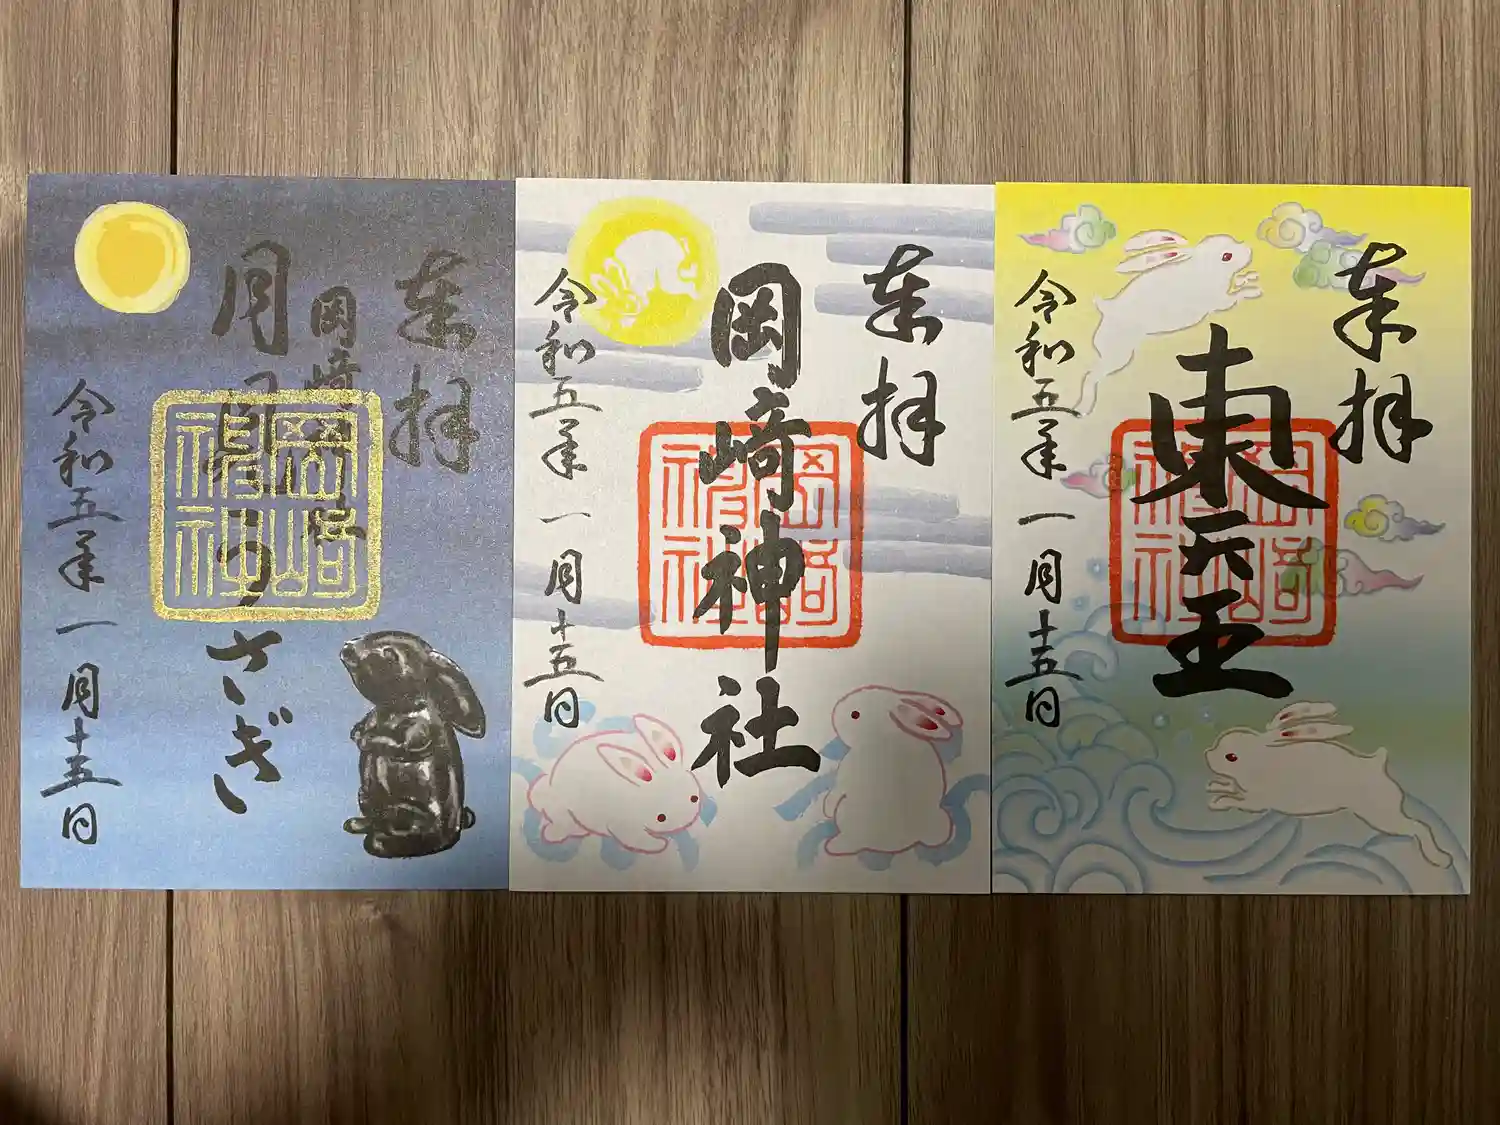 奉拝
岡崎神社
月見うさぎ
岡崎
神社
令和五年一月十五日
奉拝
岡崎神社
岡崎
神社
令和五年一月十五日
奉拝
東天王
岡崎
神社
令和五年一月十五日